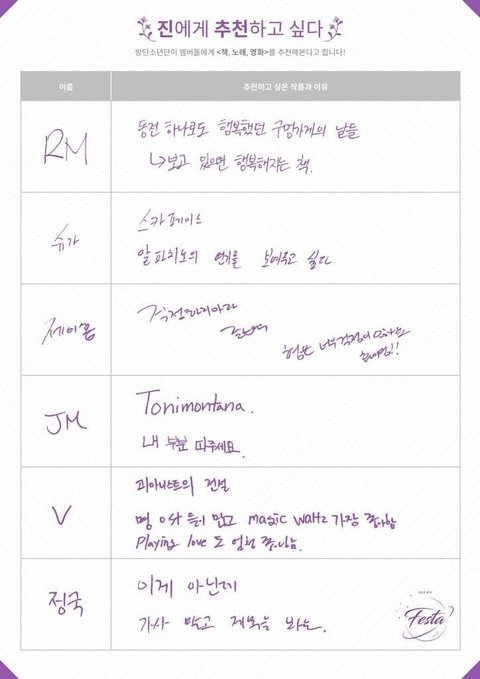 진에게 추천하고 싶다
방탄소년단이 멤버들에게 <책, 노래, 영화>를 추천해본다고 합니다!
이름
추천하고 싶은 작품과 이유
RM
동전 하나로도 행복했던 구멍가게의 날들
↳보고 있으면 행복해지는 책.
슈가
스카페이스
알파치노의 연기를 보여주고 싶다
제이홉
걱정하지마라
형은 너무 걱정이 많아
JM
Tonimontana.
내 부분 따주세요.
V
피아니스트의 전설
명 OST 들이 많고 magic waltz 가장 좋아함
Playing love 도 엄청 좋아함.
정국
이게 아닌데
가사 말고 제목을 봐요.
Festa